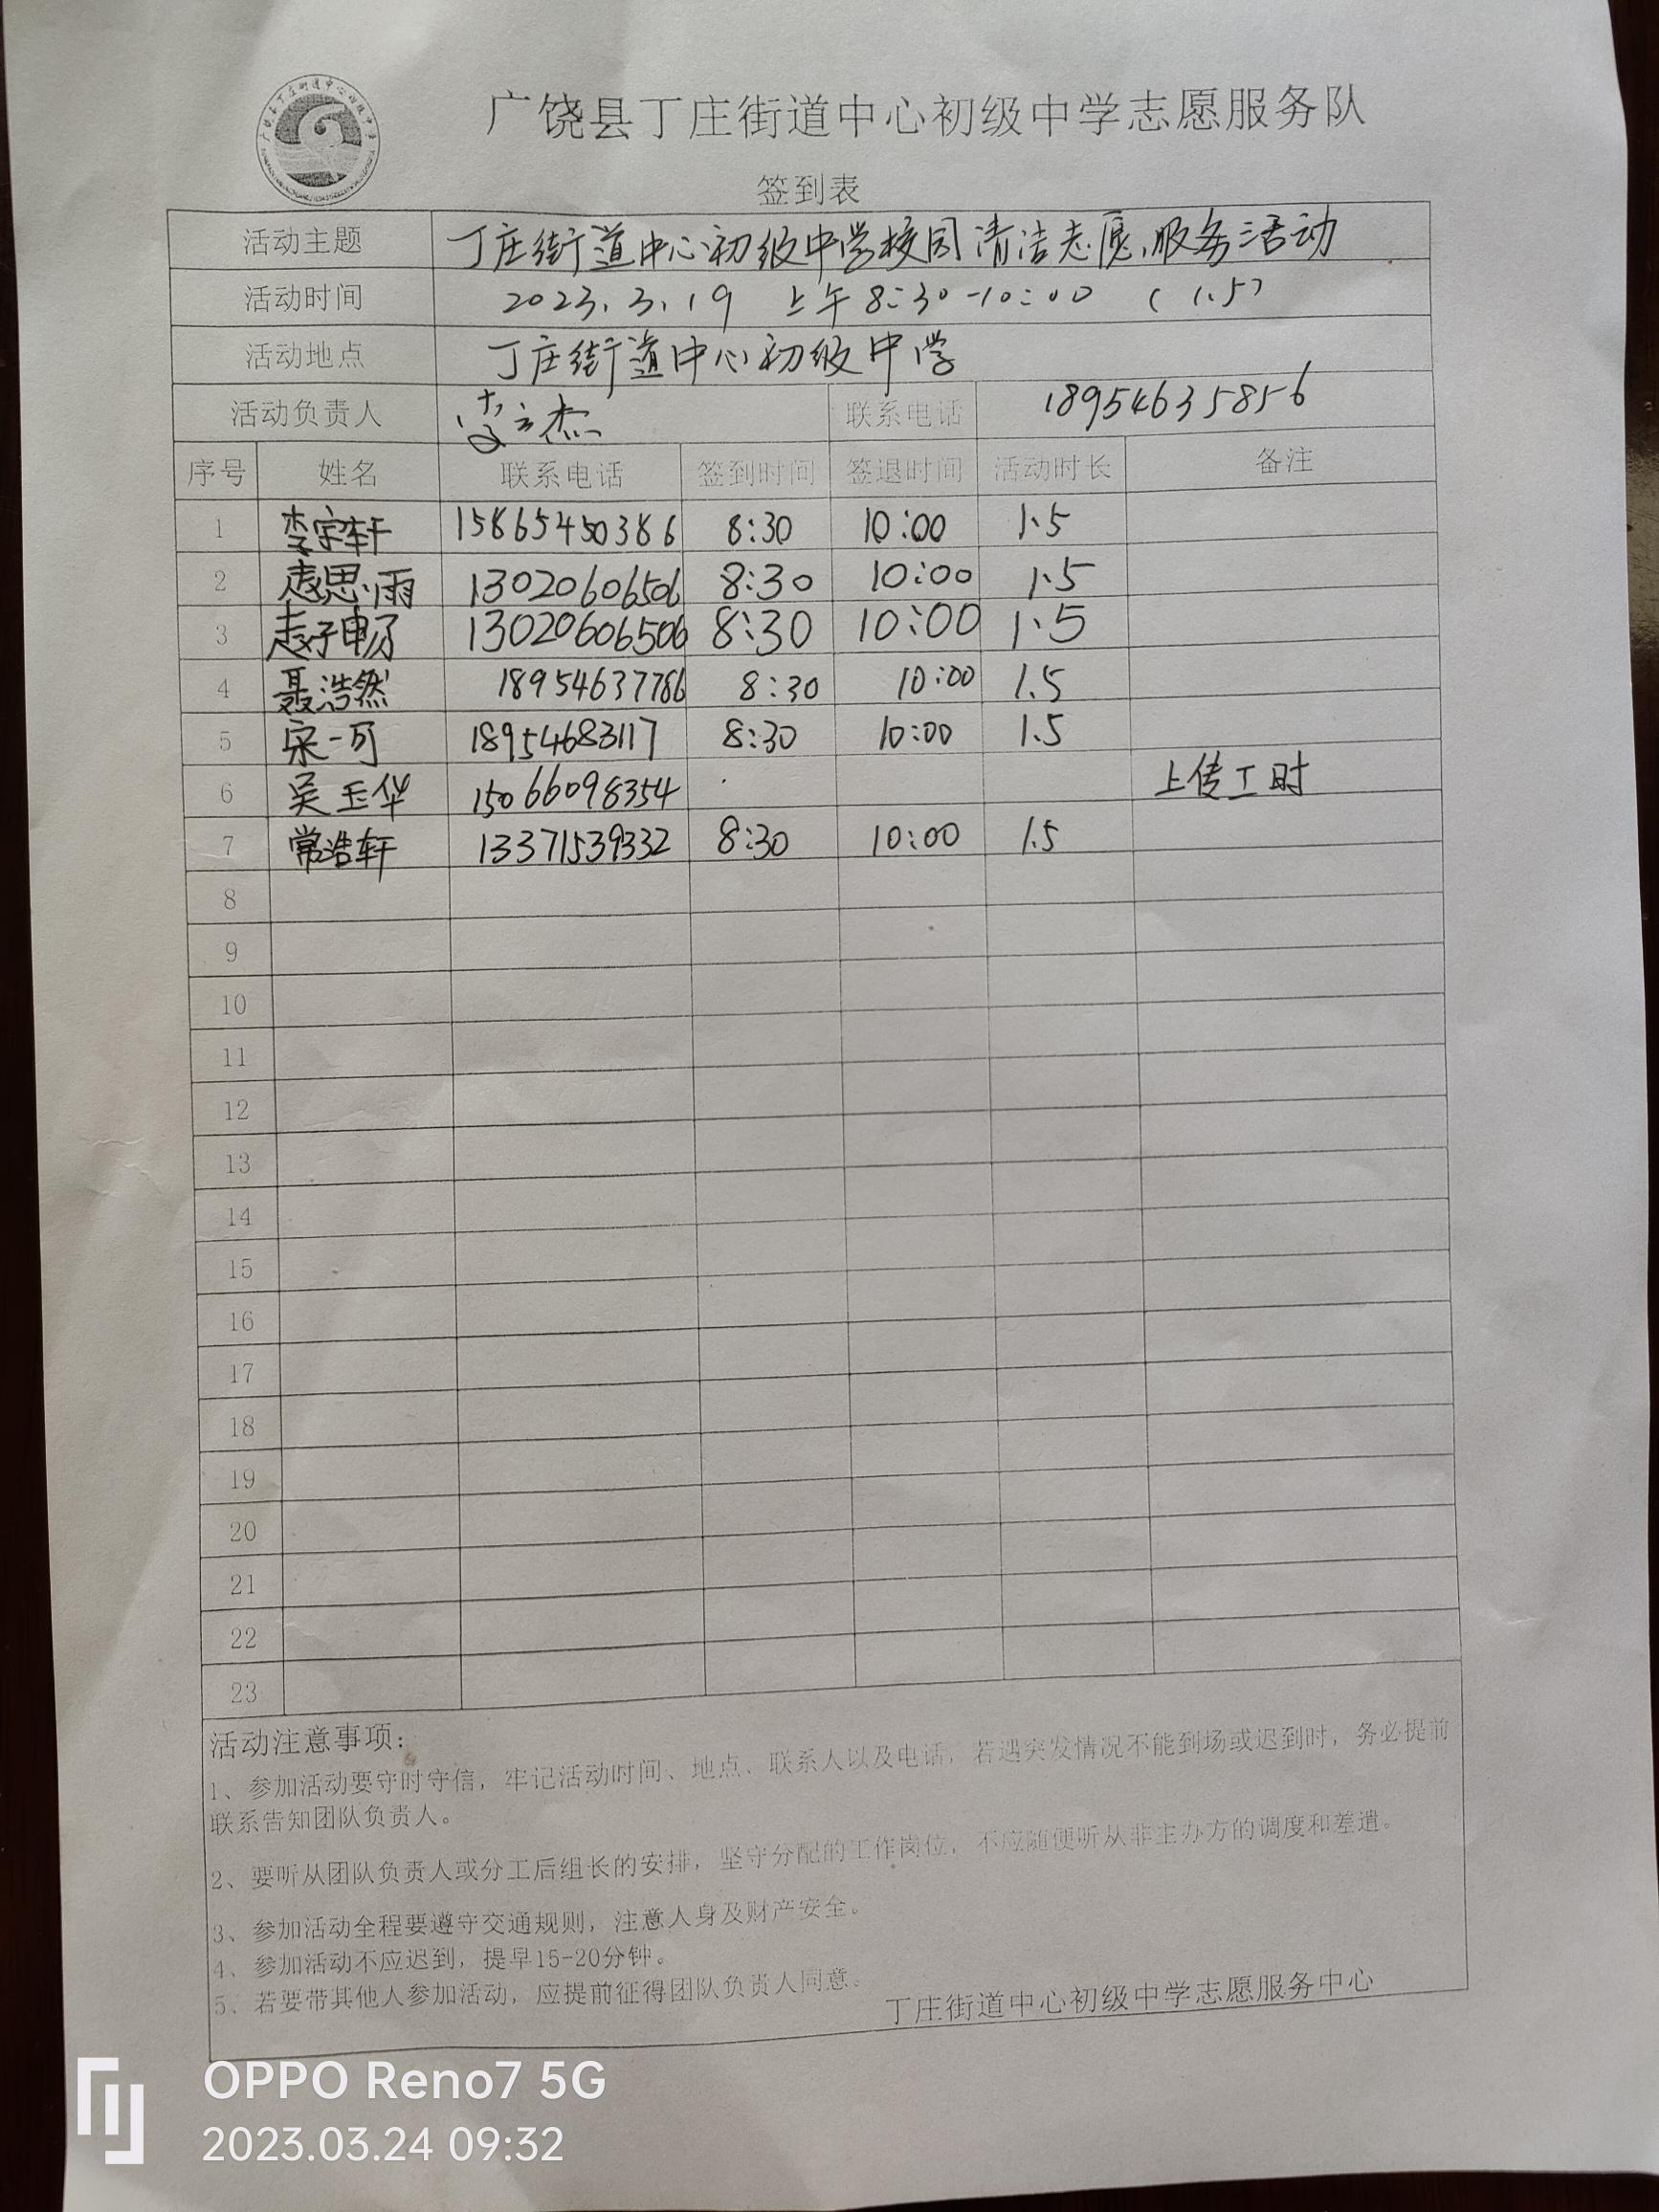 广饶县丁庄街道中心初级中学志愿服务队
签到表
活动主题 丁庄街道中心初级中学校园清洁志愿服务活动
活动时间 2023.3.19 上午8:30-10:00 (1.5)
活动地点 丁庄街道中心初级中学
活动负责人 联系电话 18954635856
序号 姓名 联系电话 签到时间 签退时间 活动时长 备注
1 李宇轩 15865450386 8:30 10:00 1.5
2 赵思雨 13020606506 8:30 10:00 1.5
3 赵子畅 13020606506 8:30 10:00 1.5
4 聂浩然 18954637786 8:30 10:00 1.5
5 宋一可 18954683117 8:30 10:00 1.5
6 吴玉华 15066098354 上传工时
7 常浩轩 13371539332 8:30 10:00 1.5
8
9
10
11
12
13
14
15
16
17
18
19
20
21
22
23
活动注意事项:
1、参加活动要守时守信，牢记活动时间、地点、联系人以及电话，若遇突发情况不能到场或迟到时，务必提前
联系告知团队负责人。
2、要听从团队负责人或分工后组长的安排，坚守分配的工作岗位，不应随便听从非主办方的调度和差遣。
3、参加活动全程要遵守交通规则，注意人身及财产安全。
4、参加活动不应迟到，提早15-20分钟。
5、若要带其他人参加活动，应提前征得团队负责人同意。
丁庄街道中心初级中学志愿服务中心
OPPO Reno7 5G
2023.03.24 09:32